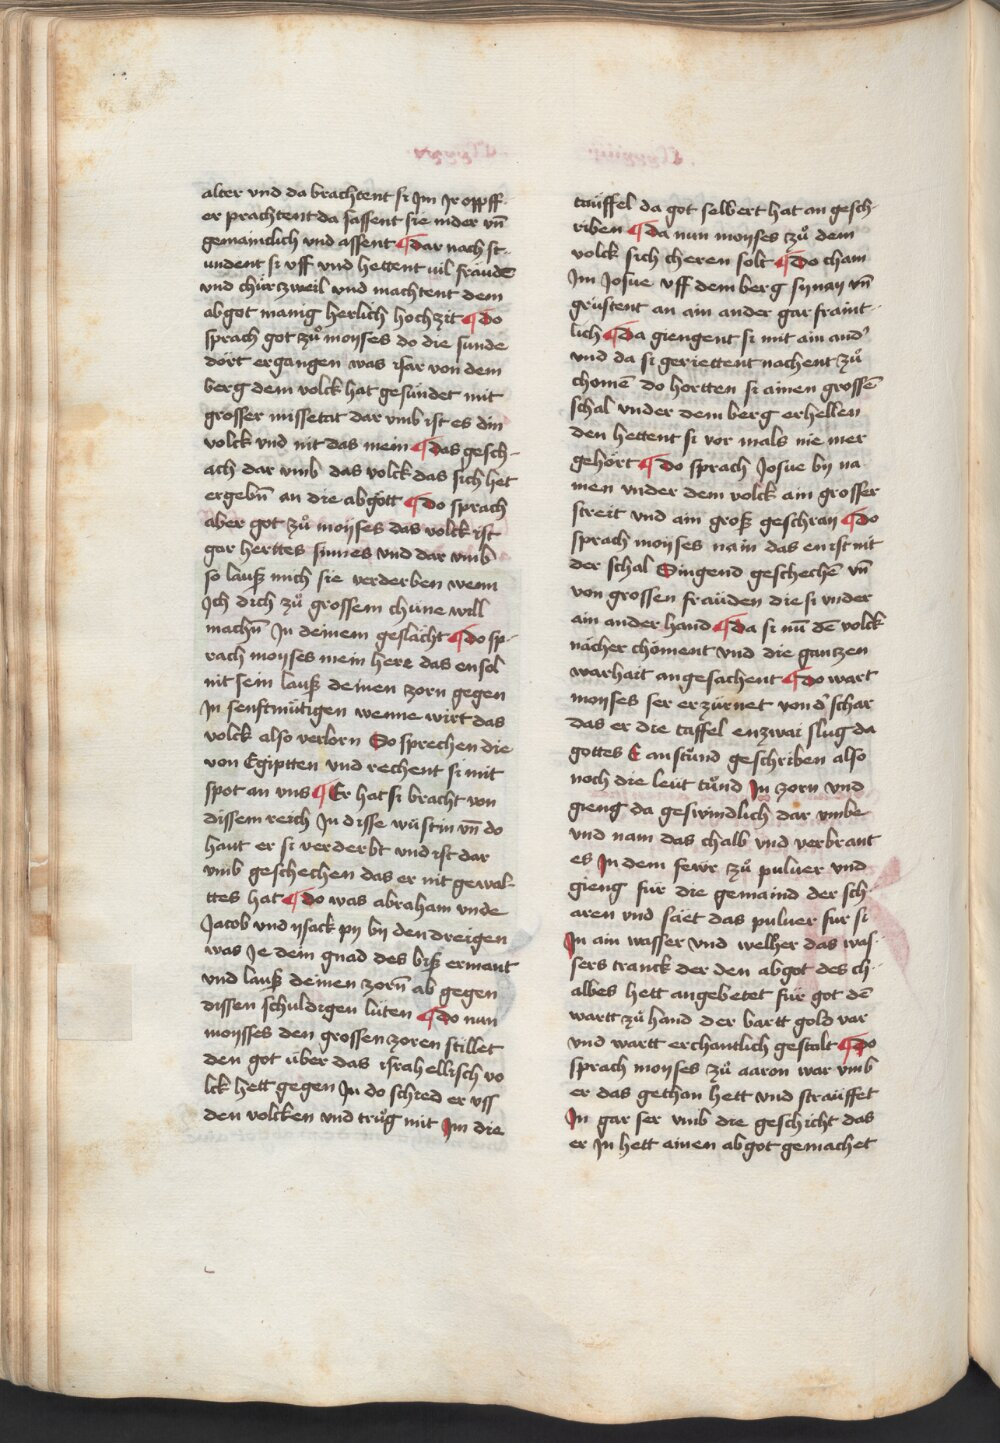 alter vnd da brachtent si Im Ir opff
er prachtent da sassent sie nider vn̄
gemaincklich vnd assent ¶ Dar nach st-
undent si vff vnd hettent vil fräudē
vnd chürczweil vnd machtent dem
abgot manig herlich hochzit ¶ Do
sprach got zů moyses do die sunde
dört ergangen was ẏsar von dem
berg dem volck hat gesündet mit
grosser missetat dar vmb ist es din
volck vnd nit das mein ¶ Das gesch-
ach dar vmb das volck das sich het
ergebn̄ an die abgött ¶ Do sprach
aber got zů moyses das volck ist
gar herttes sinnes vnd dar vmb
so lauß mich sie verderben wenn
Ich dich zů grossem chüne will
machn̄ In deinem geslächt ¶ Do sp-
rach moyses mein herr das ensol
nit sein lauß deinen zorn gegen
In senftmütigen wenne wirt das
volck also verlorn So sprechen die
von Egiptten vnd rechent si mit
spot an vns ¶ Er hat si bracht von
dissem reich In disse wüstin vn̄ do
haut er si verderbt vnd ist dar
vmb geschechen das er nit gewal-
ttes hat ¶ Do was abraham vnde
Jacob vnd ysack py by den dreigen
was Je dein gnad des biß ermant
vnd lauß deinen zorn̄ ab gegen
dissen schuldigen lüten ¶ Do nun
moysses den grossen zoren stillet
den got über das israhellisch vo
lck hett gegen In do schied er vss
den volcken vnd trůg mit Im die
taüffel da got selbert hat an gesch-
riben ¶ Da nun moyses zů dem
volck sich cheren solt ¶ Do cham
Im Josue vff dem berg synay vn̄
grüstent an ain ander gar fraint-
lich ¶ Da giengent si mit ain and'
vnd da si geriettent nachent zů
chomē do hortten si ainen grossē
schal vnder dem berg erhellen
den hettent si vor mals nie mer
gehört ¶ Do sprach Josue by na-
men vnder dem volck ain grosser
streit vnd ain groß geschray ¶ Do
sprach moyses nain das en ist nit
der schal Singend geschechē vn̄
von grossen fraüden die si vnder
ain ander hand ¶ Da si nū dē volck
nächer chöment vnd die gantzen
warhait angesachent ¶ Do wart
moyses ser erzürnet von d' schar
das er die taffel enzwai slug da
gottes E anstůnd geschriben also
noch die leüt tůnd In zorn vnd
gieng da geswindlich dar vmbe
vnd nam das chalb vnd verbrant
es In dem fewr zů puluer vnd
gieng für die gemaind der sch-
aren vnd säet das puluer für si
In ain wasser vnd welher das was-
sers tranck der den abgot des ch-
albes hett angebetet für got dē
wartt zů hand der bartt gold var
vnd wartt erchantlich gestalt ¶ Do
sprach moyses zů aaron war vmb
er das gethan hett vnd straüffet
In gar ser vmb die geschicht das
er In hett ainen abgot gemachet